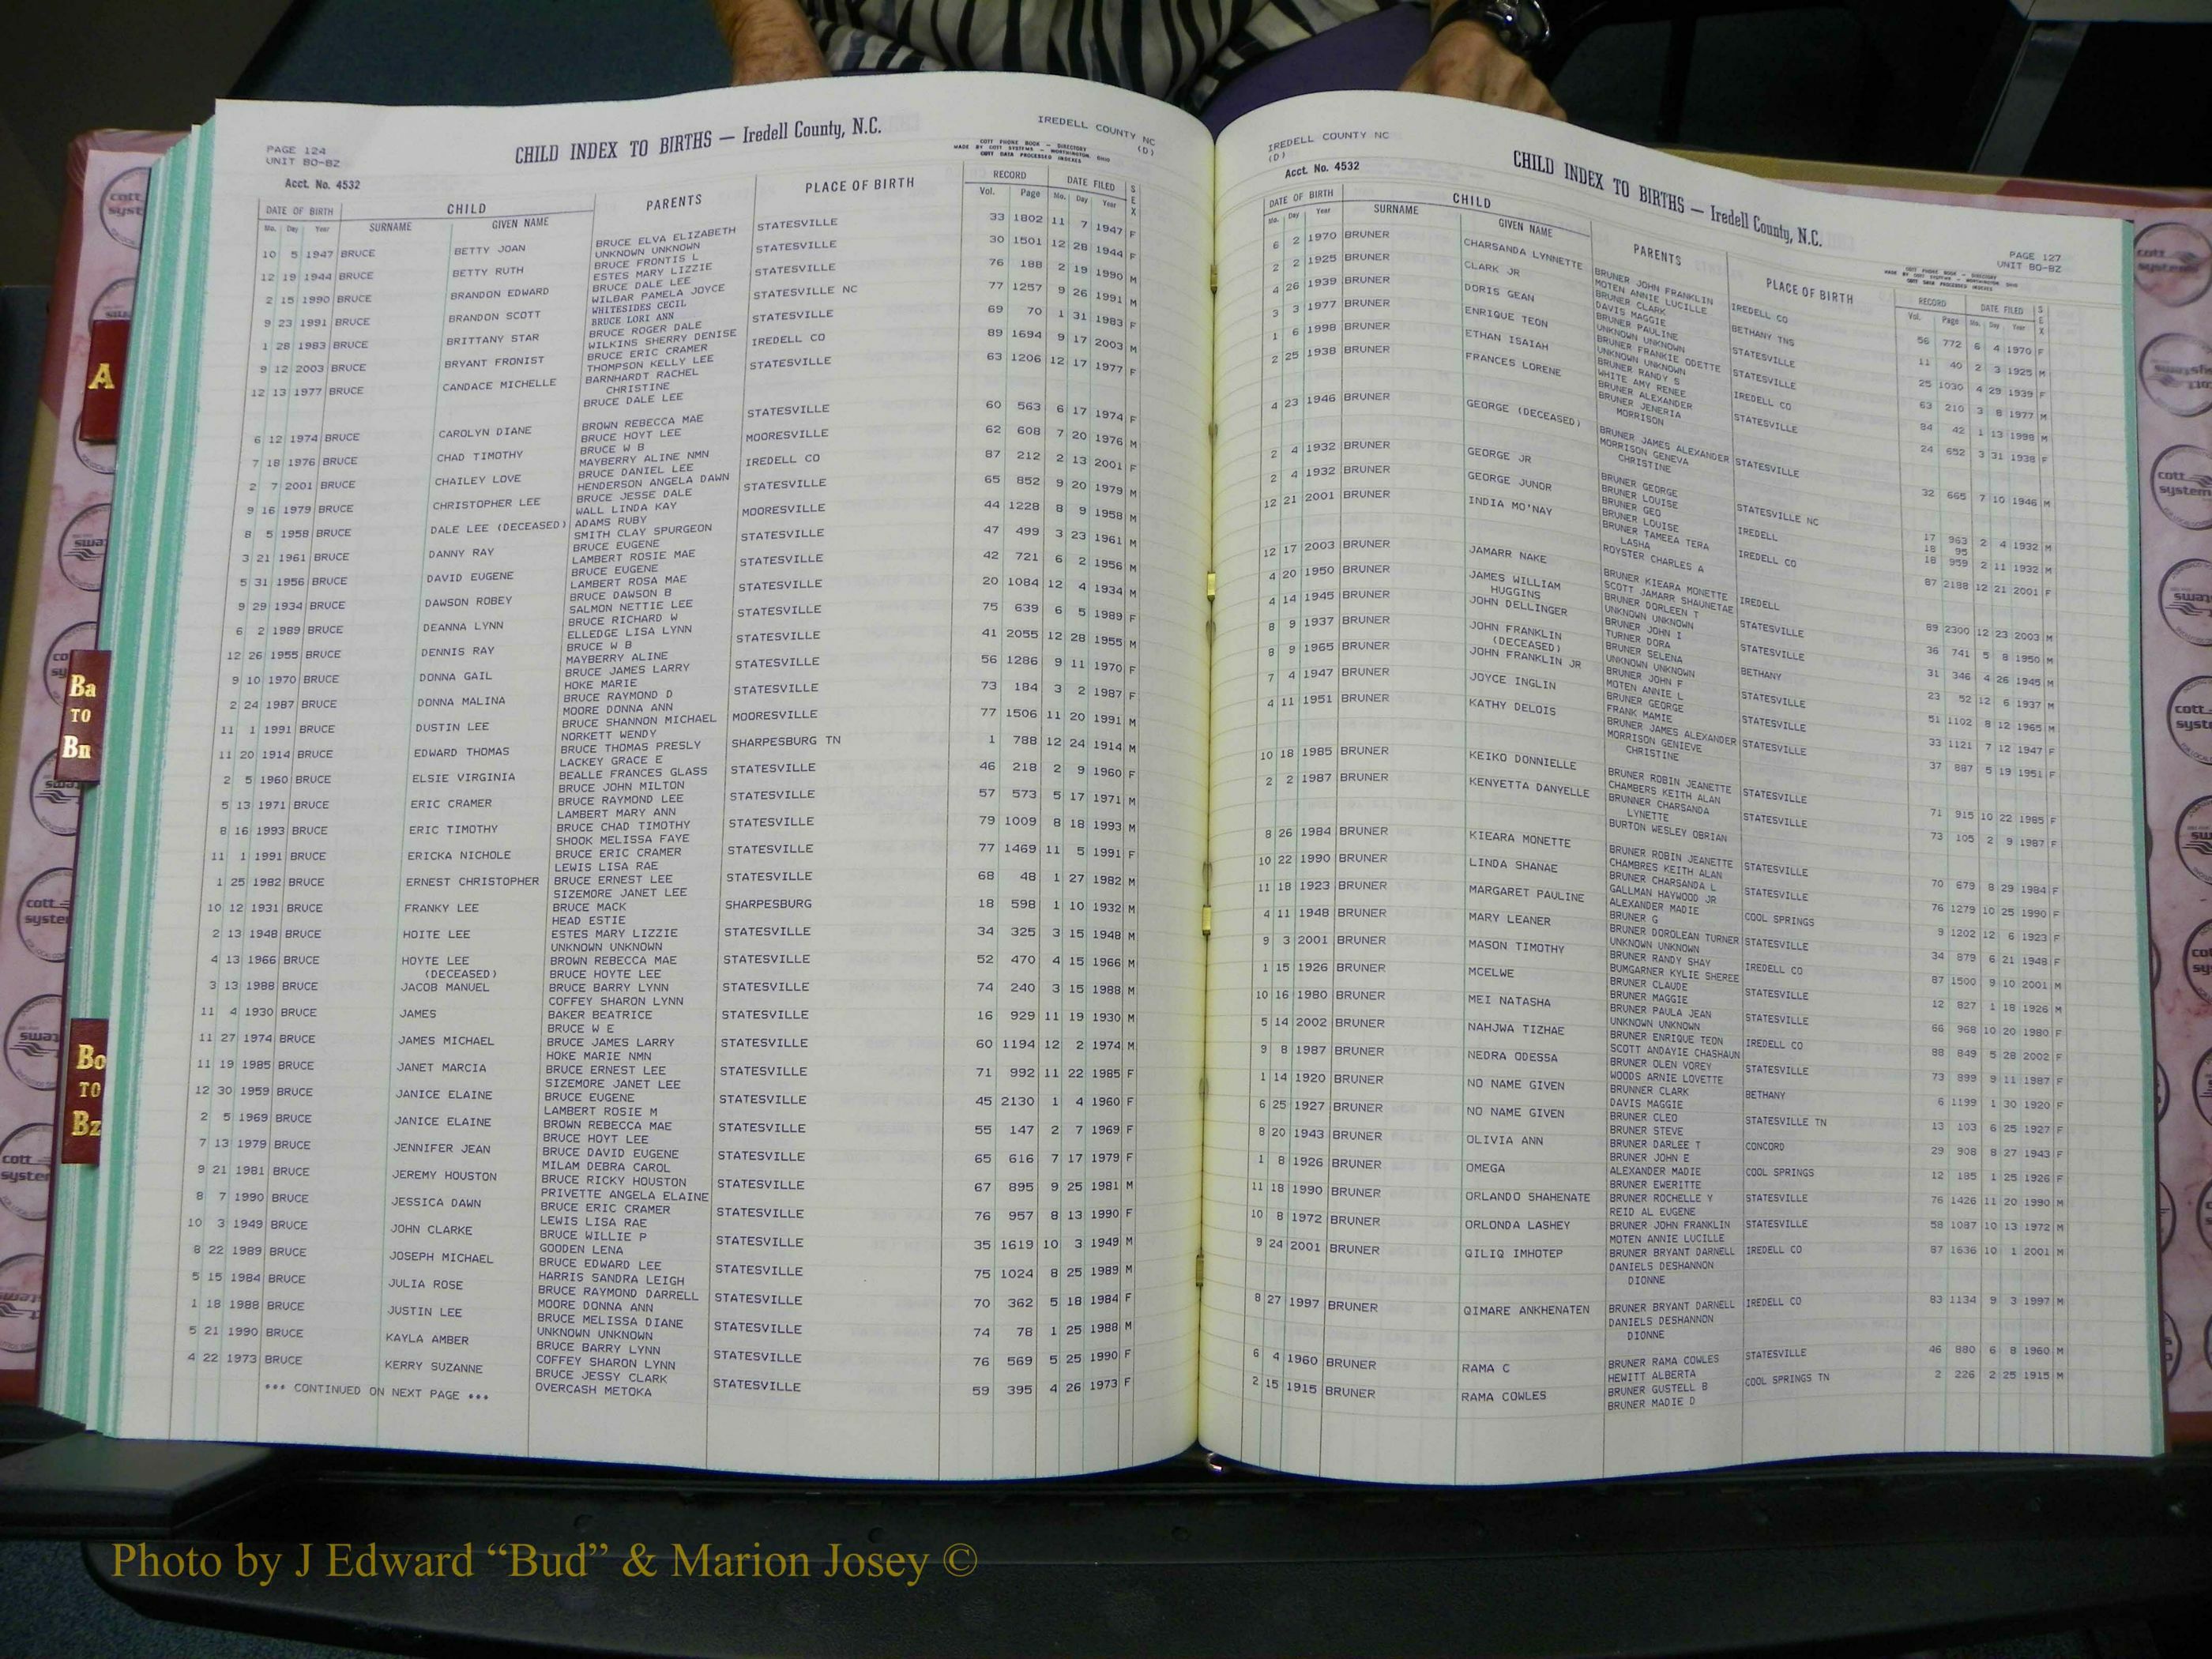 PAGE 124
UNIT BO-BZ
CHILD INDEX TO BIRTHS — Iredell County, N.C.
IREDELL COUNTY NC
(D)
COTT PHONE BOOK — DIRECTORY
MADE BY COTT SYSTEMS — WORTHINGTON, OHIO
COTT DATA PROCESSED INDEXES
Acct. No. 4532
DATE OF BIRTH CHILD PARENTS PLACE OF BIRTH RECORD DATE FILED SEX
Mo. Day Year SURNAME GIVEN NAME Vol. Page Mo. Day Year
10 5 1947 BRUCE BETTY JOAN BRUCE ELVA ELIZABETH STATESVILLE 33 1802 11 7 1947 F
UNKNOWN UNKNOWN
12 19 1944 BRUCE BETTY RUTH BRUCE FRONTIS L STATESVILLE 30 1501 12 28 1944 F
ESTES MARY LIZZIE
2 15 1990 BRUCE BRANDON EDWARD BRUCE DALE LEE STATESVILLE 76 188 2 19 1990 M
WILBAR PAMELA JOYCE
9 23 1991 BRUCE BRANDON SCOTT WHITESIDES CECIL STATESVILLE NC 77 1257 9 26 1991 M
BRUCE LORI ANN
1 28 1983 BRUCE BRITTANY STAR BRUCE ROGER DALE STATESVILLE 69 70 1 31 1983 F
WILKINS SHERRY DENISE
9 12 2003 BRUCE BRYANT FRONIST BRUCE ERIC CRAMER IREDELL CO 89 1694 9 17 2003 M
THOMPSON KELLY LEE
12 13 1977 BRUCE CANDACE MICHELLE BARNHARDT RACHEL STATESVILLE 63 1206 12 17 1977 F
CHRISTINE
BRUCE DALE LEE
6 12 1974 BRUCE CAROLYN DIANE BROWN REBECCA MAE STATESVILLE 60 563 6 17 1974 F
BRUCE HOYT LEE
7 18 1976 BRUCE CHAD TIMOTHY BRUCE W B MOORESVILLE 62 608 7 20 1976 M
MAYBERRY ALINE NMN
2 7 2001 BRUCE CHAILEY LOVE BRUCE DANIEL LEE IREDELL CO 87 212 2 13 2001 F
HENDERSON ANGELA DAWN
9 16 1979 BRUCE CHRISTOPHER LEE BRUCE JESSE DALE STATESVILLE 65 852 9 20 1979 M
WALL LINDA KAY
8 5 1958 BRUCE DALE LEE (DECEASED) ADAMS RUBY MOORESVILLE 44 1228 8 9 1958 M
SMITH CLAY SPURGEON
3 21 1961 BRUCE DANNY RAY BRUCE EUGENE STATESVILLE 47 499 3 23 1961 M
LAMBERT ROSIE MAE
5 31 1956 BRUCE DAVID EUGENE BRUCE EUGENE STATESVILLE 42 721 6 2 1956 M
LAMBERT ROSA MAE
9 29 1934 BRUCE DAWSON ROBEY BRUCE DAWSON B STATESVILLE 20 1084 12 4 1934 M
SALMON NETTIE LEE
6 2 1989 BRUCE DEANNA LYNN BRUCE RICHARD W STATESVILLE 75 639 6 5 1989 F
ELLEDGE LISA LYNN
12 26 1955 BRUCE DENNIS RAY BRUCE W B STATESVILLE 41 2055 12 28 1955 M
MAYBERRY ALINE
9 10 1970 BRUCE DONNA GAIL BRUCE JAMES LARRY STATESVILLE 56 1286 9 11 1970 F
HOKE MARIE
2 24 1987 BRUCE DONNA MALINA BRUCE RAYMOND D STATESVILLE 73 184 3 2 1987 F
MOORE DONNA ANN
11 1 1991 BRUCE DUSTIN LEE BRUCE SHANNON MICHAEL MOORESVILLE 77 1506 11 20 1991 M
NORKETT WENDY
11 20 1914 BRUCE EDWARD THOMAS BRUCE THOMAS PRESLY SHARPESBURG TN 1 788 12 24 1914 M
LACKEY GRACE E
2 5 1960 BRUCE ELSIE VIRGINIA BEALLE FRANCES GLASS STATESVILLE 46 218 2 9 1960 F
BRUCE JOHN MILTON
5 13 1971 BRUCE ERIC CRAMER BRUCE RAYMOND LEE STATESVILLE 57 573 5 17 1971 M
LAMBERT MARY ANN
8 16 1993 BRUCE ERIC TIMOTHY BRUCE CHAD TIMOTHY STATESVILLE 79 1009 8 18 1993 M
SHOOK MELISSA FAYE
11 1 1991 BRUCE ERICKA NICHOLE BRUCE ERIC CRAMER STATESVILLE 77 1469 11 5 1991 F
LEWIS LISA RAE
1 25 1982 BRUCE ERNEST CHRISTOPHER BRUCE ERNEST LEE STATESVILLE 68 48 1 27 1982 M
SIZEMORE JANET LEE
10 12 1931 BRUCE FRANKY LEE BRUCE MACK SHARPESBURG 18 598 1 10 1932 M
HEAD ESTIE
2 13 1948 BRUCE HOITE LEE ESTES MARY LIZZIE STATESVILLE 34 325 3 15 1948 M
UNKNOWN UNKNOWN
4 13 1966 BRUCE HOYTE LEE BROWN REBECCA MAE STATESVILLE 52 470 4 15 1966 M
(DECEASED) BRUCE HOYTE LEE
3 13 1988 BRUCE JACOB MANUEL BRUCE BARRY LYNN STATESVILLE 74 240 3 15 1988 M
COFFEY SHARON LYNN
11 4 1930 BRUCE JAMES BAKER BEATRICE STATESVILLE 16 929 11 19 1930 M
BRUCE W E
11 27 1974 BRUCE JAMES MICHAEL BRUCE JAMES LARRY STATESVILLE 60 1194 12 2 1974 M
HOKE MARIE NMN
11 19 1985 BRUCE JANET MARCIA BRUCE ERNEST LEE STATESVILLE 71 992 11 22 1985 F
SIZEMORE JANET LEE
12 30 1959 BRUCE JANICE ELAINE BRUCE EUGENE STATESVILLE 45 2130 1 4 1960 F
LAMBERT ROSIE M
2 5 1969 BRUCE JANICE ELAINE BROWN REBECCA MAE STATESVILLE 55 147 2 7 1969 F
BRUCE HOYT LEE
7 13 1979 BRUCE JENNIFER JEAN BRUCE DAVID EUGENE STATESVILLE 65 616 7 17 1979 F
MILAM DEBRA CAROL
9 21 1981 BRUCE JEREMY HOUSTON BRUCE RICKY HOUSTON STATESVILLE 67 895 9 25 1981 M
PRIVETTE ANGELA ELAINE
8 7 1990 BRUCE JESSICA DAWN BRUCE ERIC CRAMER STATESVILLE 76 957 8 13 1990 F
LEWIS LISA RAE
10 3 1949 BRUCE JOHN CLARKE BRUCE WILLIE P STATESVILLE 35 1619 10 3 1949 M
GOODEN LENA
8 22 1989 BRUCE JOSEPH MICHAEL BRUCE EDWARD LEE STATESVILLE 75 1024 8 25 1989 M
HARRIS SANDRA LEIGH
5 15 1984 BRUCE JULIA ROSE BRUCE RAYMOND DARRELL STATESVILLE 70 362 5 18 1984 F
MOORE DONNA ANN
1 18 1988 BRUCE JUSTIN LEE BRUCE MELISSA DIANE STATESVILLE 74 78 1 25 1988 M
UNKNOWN UNKNOWN
5 21 1990 BRUCE KAYLA AMBER BRUCE BARRY LYNN STATESVILLE 76 569 5 25 1990 F
COFFEY SHARON LYNN
4 22 1973 BRUCE KERRY SUZANNE BRUCE JESSY CLARK STATESVILLE 59 395 4 26 1973 F
OVERCASH METOKA
*** CONTINUED ON NEXT PAGE ***
IREDELL COUNTY NC
(D)
Acct. No. 4532
CHILD INDEX TO BIRTHS — Iredell County, N.C.
PAGE 127
UNIT BO-BZ
DATE OF BIRTH CHILD PARENTS PLACE OF BIRTH RECORD DATE FILED SEX
Mo. Day Year SURNAME GIVEN NAME Vol. Page Mo. Day Year
6 2 1970 BRUNER CHARSANDA LYNNETTE BRUNER JOHN FRANKLIN IREDELL CO 56 772 6 4 1970 F
MOTEN ANNIE LUCILLE
2 2 1925 BRUNER CLARK JR BRUNER CLARK BETHANY TNS 11 40 2 3 1925 M
DAVIS MAGGIE
4 26 1939 BRUNER DORIS GEAN BRUNER PAULINE STATESVILLE 25 1030 4 29 1939 F
UNKNOWN UNKNOWN
3 3 1977 BRUNER ENRIQUE TEON BRUNER FRANKIE ODETTE STATESVILLE 63 210 3 8 1977 M
UNKNOWN UNKNOWN
1 6 1998 BRUNER ETHAN ISAIAH BRUNER RANDY S IREDELL CO 84 42 1 13 1998 M
WHITE AMY RENEE
2 25 1938 BRUNER FRANCES LORENE BRUNER ALEXANDER STATESVILLE 24 652 3 31 1938 F
BRUNER JENERIA
MORRISON
4 23 1946 BRUNER GEORGE (DECEASED) BRUNER JAMES ALEXANDER STATESVILLE 32 665 7 10 1946 M
MORRISON GENEVA
CHRISTINE
2 4 1932 BRUNER GEORGE JR BRUNER GEORGE STATESVILLE NC 17 963 2 4 1932 M
BRUNER LOUISE 18 95
2 4 1932 BRUNER GEORGE JUNOR BRUNER GEO IREDELL 18 959 2 11 1932 M
BRUNER LOUISE
12 21 2001 BRUNER INDIA MO'NAY BRUNER TAMEEA TERA IREDELL CO 87 2188 12 21 2001 F
LASHA
ROYSTER CHARLES A
12 17 2003 BRUNER JAMARR NAKE BRUNER KIEARA MONETTE IREDELL 89 2300 12 23 2003 M
SCOTT JAMARR SHAUNETAE
4 20 1950 BRUNER JAMES WILLIAM BRUNER DORLEEN T STATESVILLE 36 741 5 8 1950 M
HUGGINS UNKNOWN UNKNOWN
4 14 1945 BRUNER JOHN DELLINGER BRUNER JOHN I STATESVILLE 31 346 4 26 1945 M
TURNER DORA
8 9 1937 BRUNER JOHN FRANKLIN BRUNER SELENA BETHANY 23 52 12 6 1937 M
(DECEASED) UNKNOWN UNKNOWN
8 9 1965 BRUNER JOHN FRANKLIN JR BRUNER JOHN F STATESVILLE 51 1102 8 12 1965 M
MOTEN ANNIE L
7 4 1947 BRUNER JOYCE INGLIN BRUNER GEORGE STATESVILLE 33 1121 7 12 1947 F
FRANK MAMIE
4 11 1951 BRUNER KATHY DELOIS BRUNER JAMES ALEXANDER STATESVILLE 37 887 5 19 1951 F
MORRISON GENIEVE
CHRISTINE
10 18 1985 BRUNER KEIKO DONNIELLE BRUNER ROBIN JEANETTE STATESVILLE 71 915 10 22 1985 F
CHAMBERS KEITH ALAN
2 2 1987 BRUNER KENYETTA DANYELLE BRUNNER CHARSANDA STATESVILLE 73 105 2 9 1987 F
LYNETTE
BURTON WESLEY OBRIAN
8 26 1984 BRUNER KIEARA MONETTE BRUNER ROBIN JEANETTE STATESVILLE 70 679 8 29 1984 F
CHAMBRES KEITH ALAN
10 22 1990 BRUNER LINDA SHANAE BRUNER CHARSANDA L STATESVILLE 76 1279 10 25 1990 F
GALLMAN HAYWOOD JR
11 18 1923 BRUNER MARGARET PAULINE ALEXANDER MADIE COOL SPRINGS 9 1202 12 6 1923 F
BRUNER G
4 11 1948 BRUNER MARY LEANER BRUNER DOROLEAN TURNER STATESVILLE 34 879 6 21 1948 F
UNKNOWN UNKNOWN
9 3 2001 BRUNER MASON TIMOTHY BRUNER RANDY SHAY IREDELL CO 87 1500 9 10 2001 M
BUMGARNER KYLIE SHEREE
1 15 1926 BRUNER MCELWE BRUNER CLAUDE STATESVILLE 12 827 1 18 1926 M
BRUNER MAGGIE
10 16 1980 BRUNER MEI NATASHA BRUNER PAULA JEAN STATESVILLE 66 968 10 20 1980 F
UNKNOWN UNKNOWN
5 14 2002 BRUNER NAHJWA TIZHAE BRUNER ENRIQUE TEON IREDELL CO 88 849 5 28 2002 F
SCOTT ANDAYIE CHASHAUN
9 8 1987 BRUNER NEDRA ODESSA BRUNER OLEN VOREY STATESVILLE 73 899 9 11 1987 F
WOODS ARNIE LOVETTE
1 14 1920 BRUNER NO NAME GIVEN BRUNNER CLARK BETHANY 6 1199 1 30 1920 F
DAVIS MAGGIE
6 25 1927 BRUNER NO NAME GIVEN BRUNER CLEO STATESVILLE TN 13 103 6 25 1927 F
BRUNER STEVE
8 20 1943 BRUNER OLIVIA ANN BRUNER DARLEE T CONCORD 29 908 8 27 1943 F
BRUNER JOHN E
1 8 1926 BRUNER OMEGA ALEXANDER MADIE COOL SPRINGS 12 185 1 25 1926 F
BRUNER EWERITTE
11 18 1990 BRUNER ORLANDO SHAHENATE BRUNER ROCHELLE Y STATESVILLE 76 1426 11 20 1990 M
REID AL EUGENE
10 8 1972 BRUNER ORLONDA LASHEY BRUNER JOHN FRANKLIN STATESVILLE 58 1087 10 13 1972 M
MOTEN ANNIE LUCILLE
9 24 2001 BRUNER QILIQ IMHOTEP BRUNER BRYANT DARNELL IREDELL CO 87 1636 10 1 2001 M
DANIELS DESHANNON
DIONNE
8 27 1997 BRUNER QIMARE ANKHENATEN BRUNER BRYANT DARNELL IREDELL CO 83 1134 9 3 1997 M
DANIELS DESHANNON
DIONNE
6 4 1960 BRUNER RAMA C BRUNER RAMA COWLES STATESVILLE 46 880 6 8 1960 M
HEWITT ALBERTA
2 15 1915 BRUNER RAMA COWLES BRUNER GUSTELL B COOL SPRINGS TN 2 226 2 25 1915 M
BRUNER MADIE D
A
Ba
TO
Bn
Bo
TO
Bz
Photo by J Edward “Bud” & Marion Josey ©